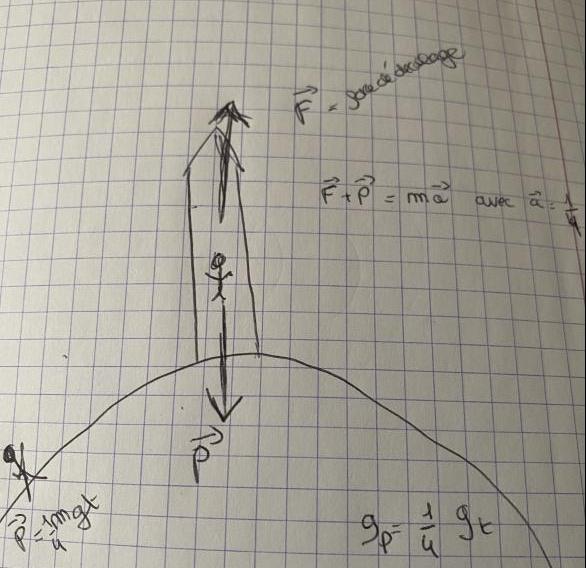 F⃗ = force de décollage
F⃗ + P⃗ = ma⃗ avec a⃗ = 1/4
P⃗
P⃗ = 1/4 mgt
gp = 1/4 gt